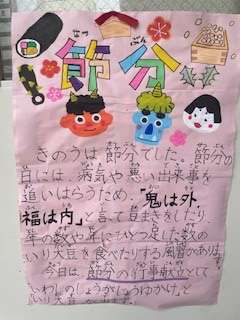 せつ ぶん
節分
きのうは、節分でした。節分の
日には、病気や悪い出来事を
追いはらうため、「鬼は外、
福は内」と言って豆まきをしたり、
年の数や年に1つ足した数の
いり大豆を食べたりする風習があります。
今日は、節分の行事献立として
「いわしのしょうがじょうゆかけ」と